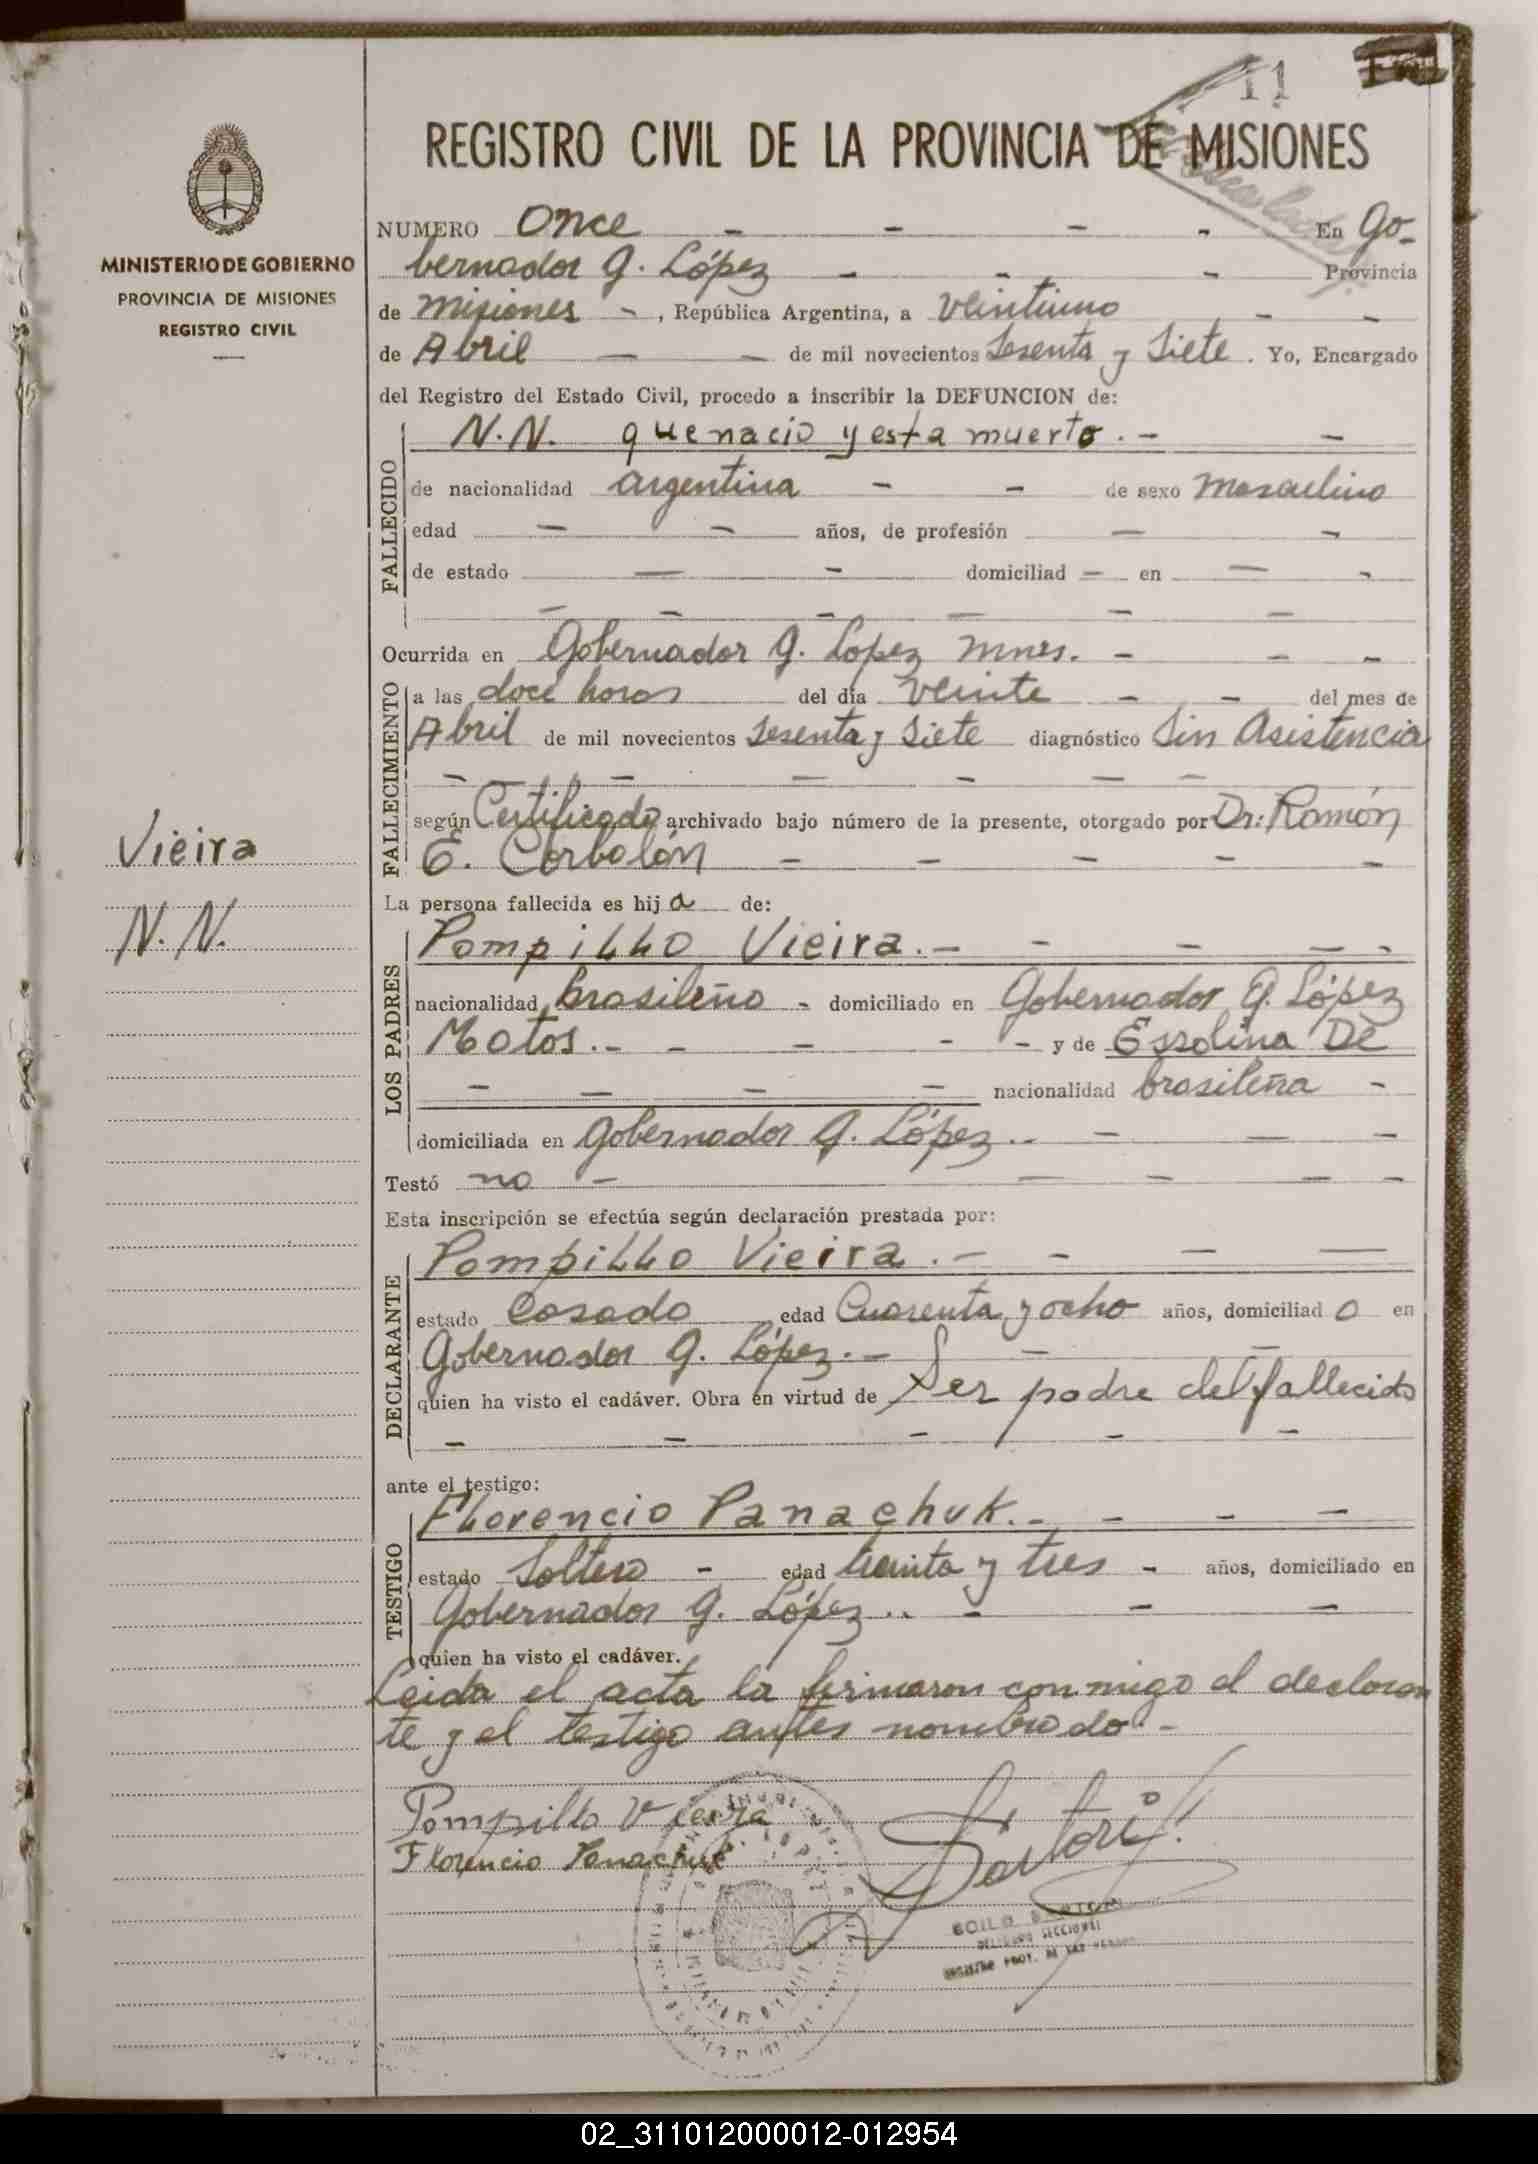 11
REGISTRO CIVIL DE LA PROVINCIA DE MISIONES
MINISTERIO DE GOBIERNO
PROVINCIA DE MISIONES
REGISTRO CIVIL
NUMERO Once - - - - En Go-
bernador G. López - - - Provincia
de Misiones - , República Argentina, a veintiuno - -
de Abril - - de mil novecientos Sesenta y Siete . Yo, Encargado
del Registro del Estado Civil, procedo a inscribir la DEFUNCION de:
FALLECIDO
N.N. que nacio y esta muerto. - -
de nacionalidad argentina - - de sexo masculino
edad - - años, de profesión - -
de estado - - domiciliad - en - -
- - - - - -
Ocurrida en Gobernador G. Lopez Mnes. - - -
FALLECIMIENTO
a las doce horas del día veinte - - del mes de
Abril de mil novecientos Sesenta y Siete diagnóstico Sin Asistencia
- - - - - -
según Certificado archivado bajo número de la presente, otorgado por Dr: Ramón
E. Corbalán - - - - -
Vieira
N. N.
La persona fallecida es hij a de:
LOS PADRES
Pompillo Vieira. - - - - -
nacionalidad brasileño - domiciliado en Gobernador G. López
Motos. - - - - - y de Essolina De
- - - - nacionalidad brasileña -
domiciliada en Gobernador G. López.. - - -
Testó no - - - - -
Esta inscripción se efectúa según declaración prestada por:
DECLARANTE
Pompillo Vieira. - - - -
estado Casado edad Cuarenta y ocho años, domiciliad o en
Gobernador G. López. - - -
quien ha visto el cadáver. Obra en virtud de Ser padre del fallecido
- - - - -
ante el testigo:
TESTIGO
Florencio Panachuk. - - - -
estado Soltero - edad treinta y tres - años, domiciliado en
Gobernador G. López.. - - -
quien ha visto el cadáver.
Leida el acta la firmaron conmigo el declaran
te y el testigo antes nombrado. -
Pompillo Vieira
Florencio Panachuk
Sartori
02_311012000012-012954